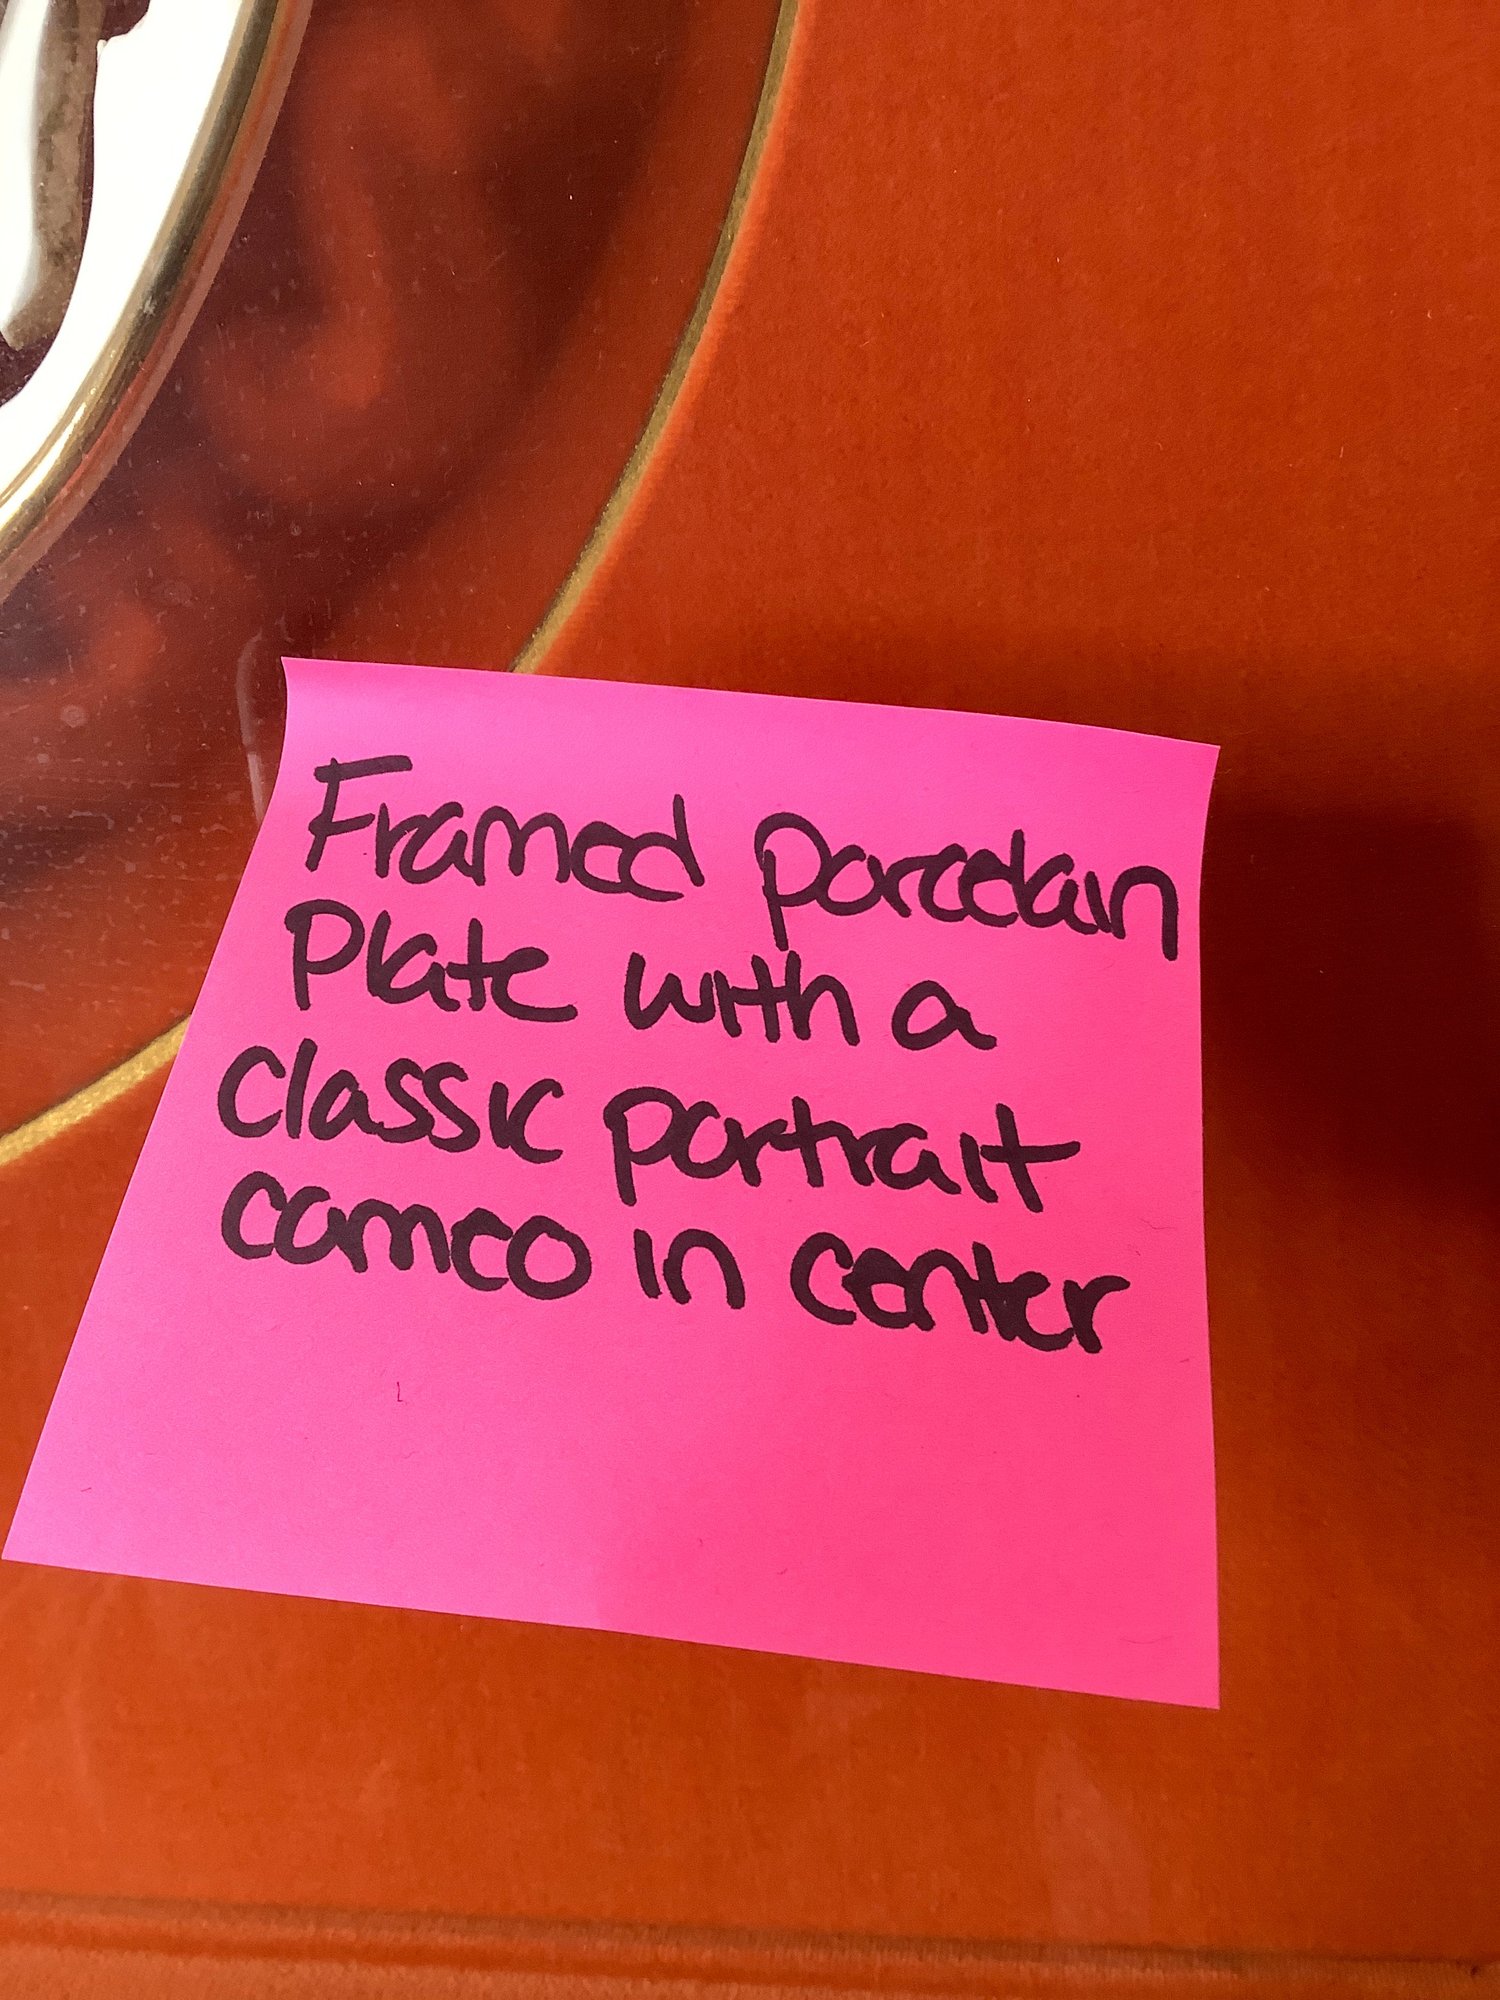 Framed porcelain
Plate with a
classic portrait
cameo in center